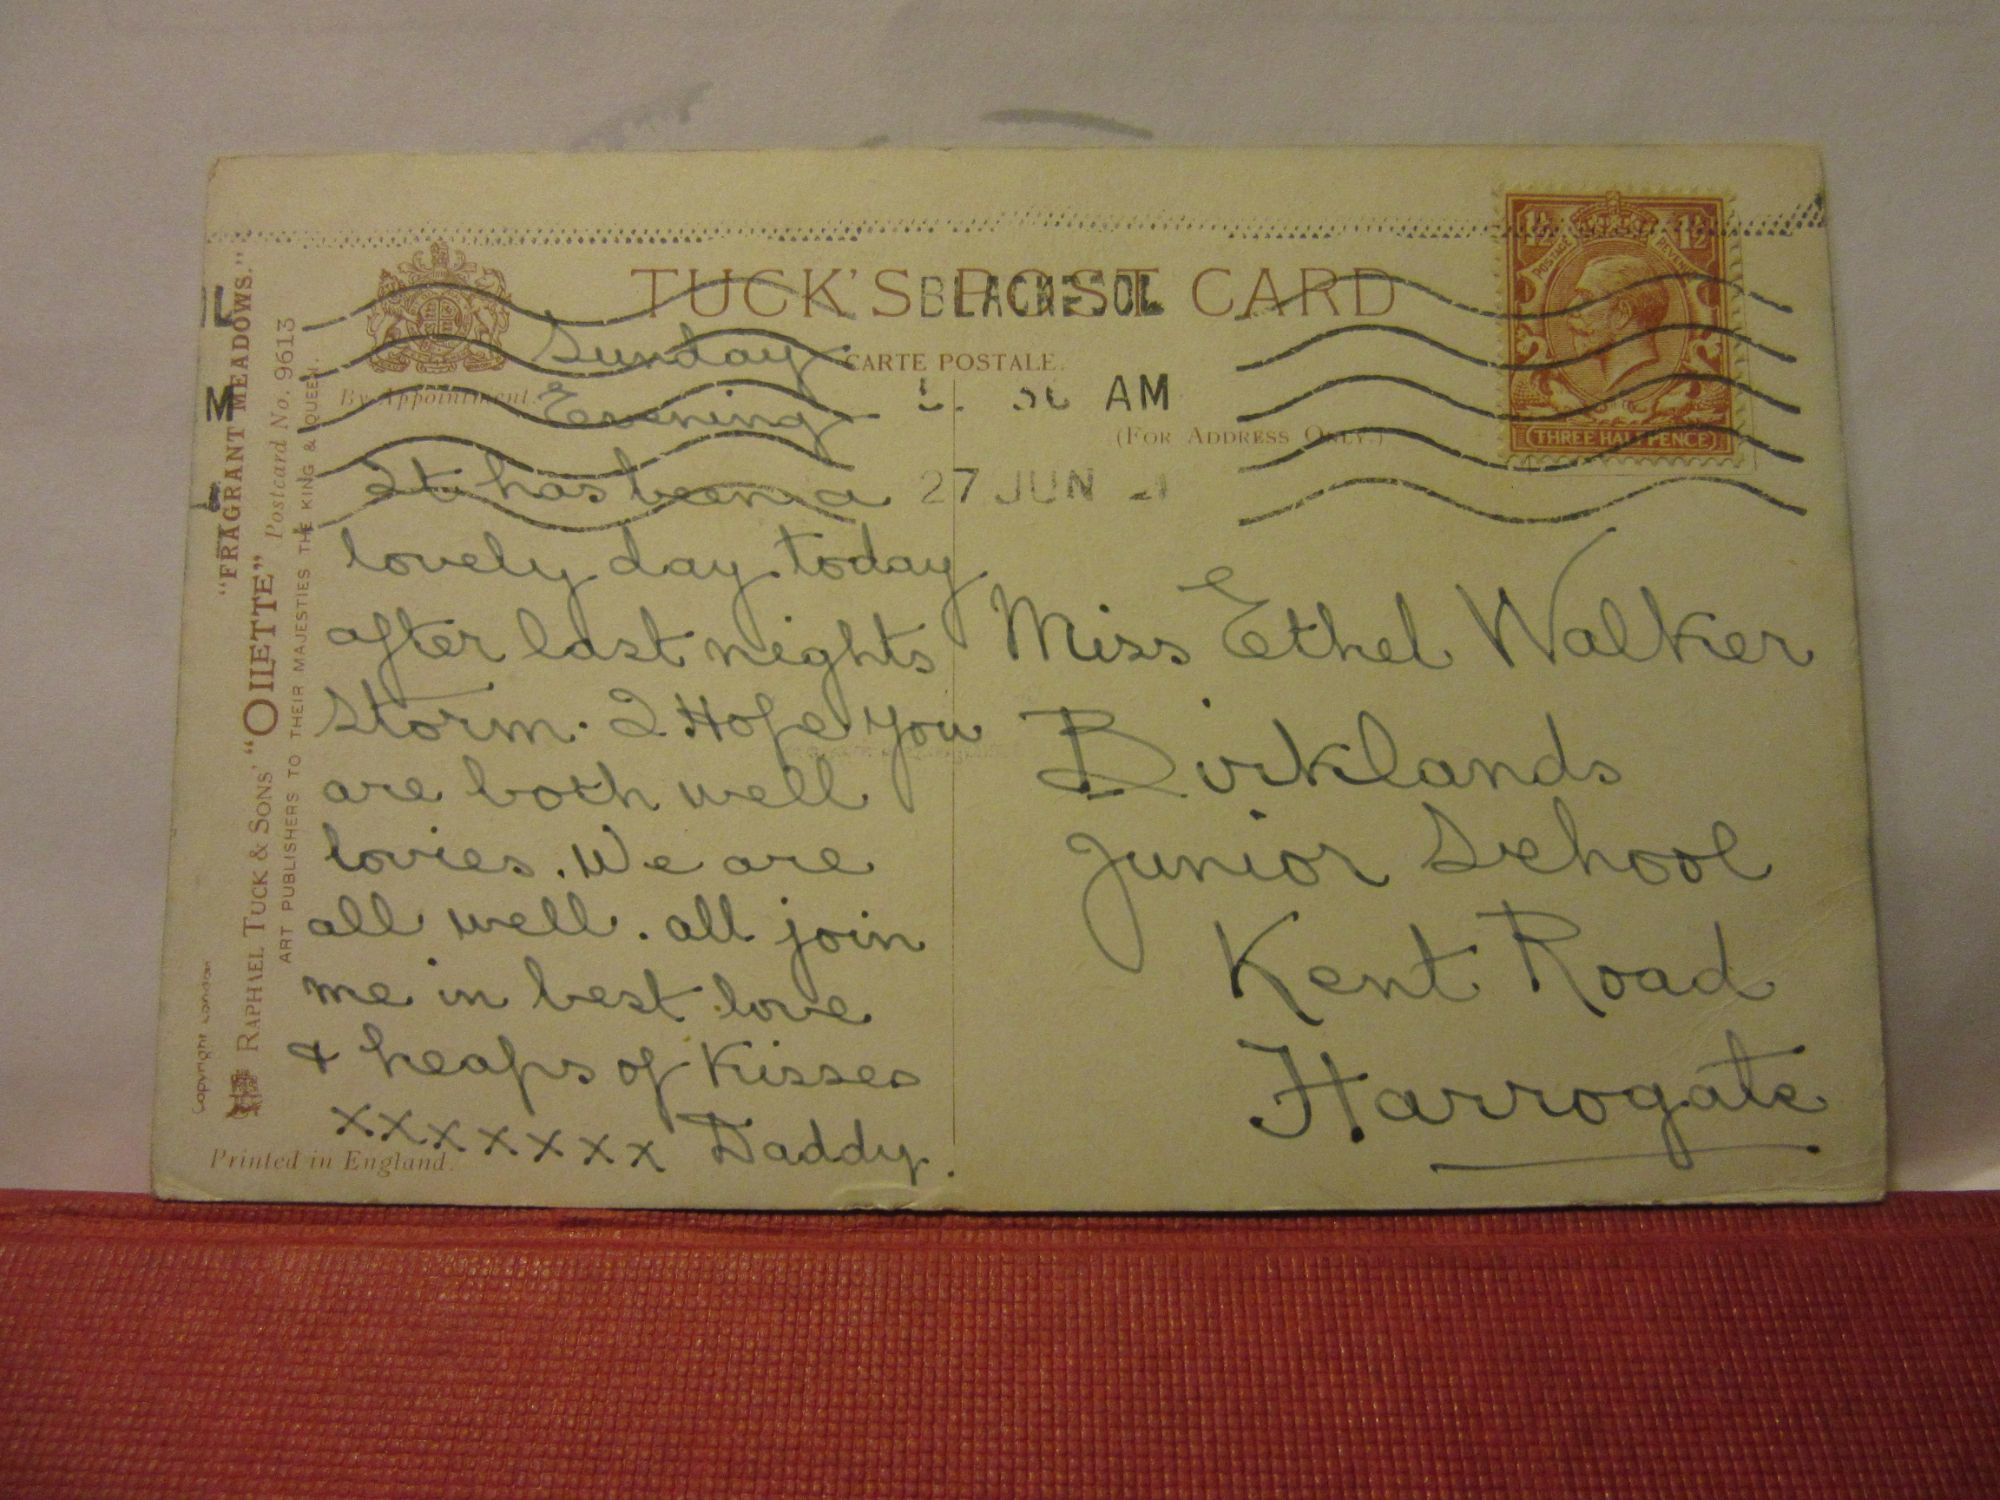 TUCK'S POST CARD
CARTE POSTALE.
(FOR ADDRESS ONLY.)
By Appointment.
AM
27 JUN
1½ 1½
POSTAGE REVENUE
THREE HALF PENCE
"FRAGRANT MEADOWS."
RAPHAEL TUCK & SONS' "OILETTE" Postcard No. 9613
ART PUBLISHERS TO THEIR MAJESTIES THE KING & QUEEN.
Copyright London
Printed in England.
Sunday
Evening
It has been a
lovely day today
after last nights
storm. I Hope you
are both well
lovies. We are
all well. all join
me in best love
& heaps of kisses
xxxxxxx Daddy.
Miss Ethel Walker
Birklands
Junior School
Kent Road
Harrogate